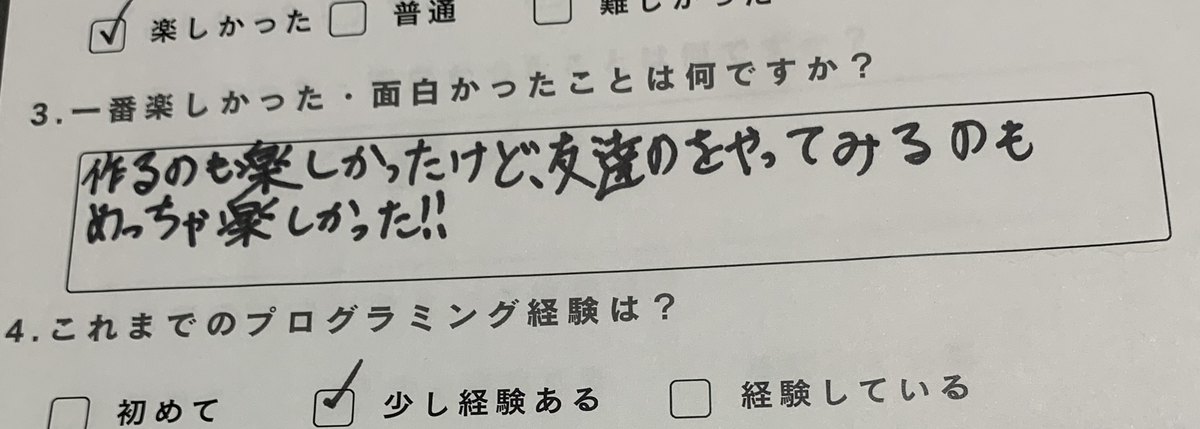 ☑ 楽しかった □ 普通 □ 難しかった
3.一番楽しかった・面白かったことは何ですか？
作るのも楽しかったけど、友達のをやってみるのも
めっちゃ楽しかった!!
4.これまでのプログラミング経験は？
□ 初めて ☑ 少し経験ある □ 経験している